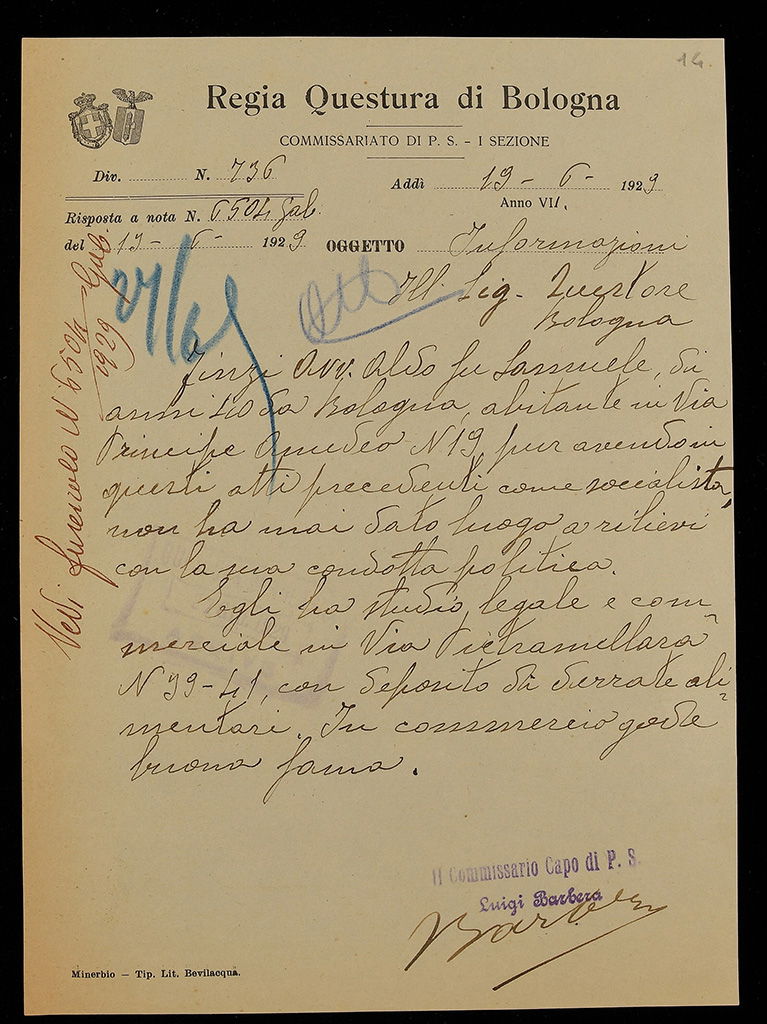 14.
Regia Questura di Bologna
COMMISSARIATO DI P. S. - I SEZIONE
Div. N. 736
Addì 19 - 6 - 1929
Anno VII.
Risposta a nota N. 6504 Gab.
del 19 - 6 - 1929 OGGETTO Informazioni
Ill. Sig. Questore
Bologna
27/6
Vedi fascicolo N 6504 Gab.
1929
Finzi Avv. Aldo fu Samuele, di
anni 40 da Bologna, abitante in Via
Principe Amedeo N 19, pur avendo in
questi atti precedenti come socialista,
non ha mai dato luogo a rilievi
con la sua condotta politica.
Egli ha studio legale e com
merciale in Via Pietramellara
N 39-41, con deposito di derrate ali
mentari. In commercio gode
buona fama.
Il Commissario Capo di P. S.
Luigi Barbera
Barbera
Minerbio — Tip. Lit. Bevilacqua.